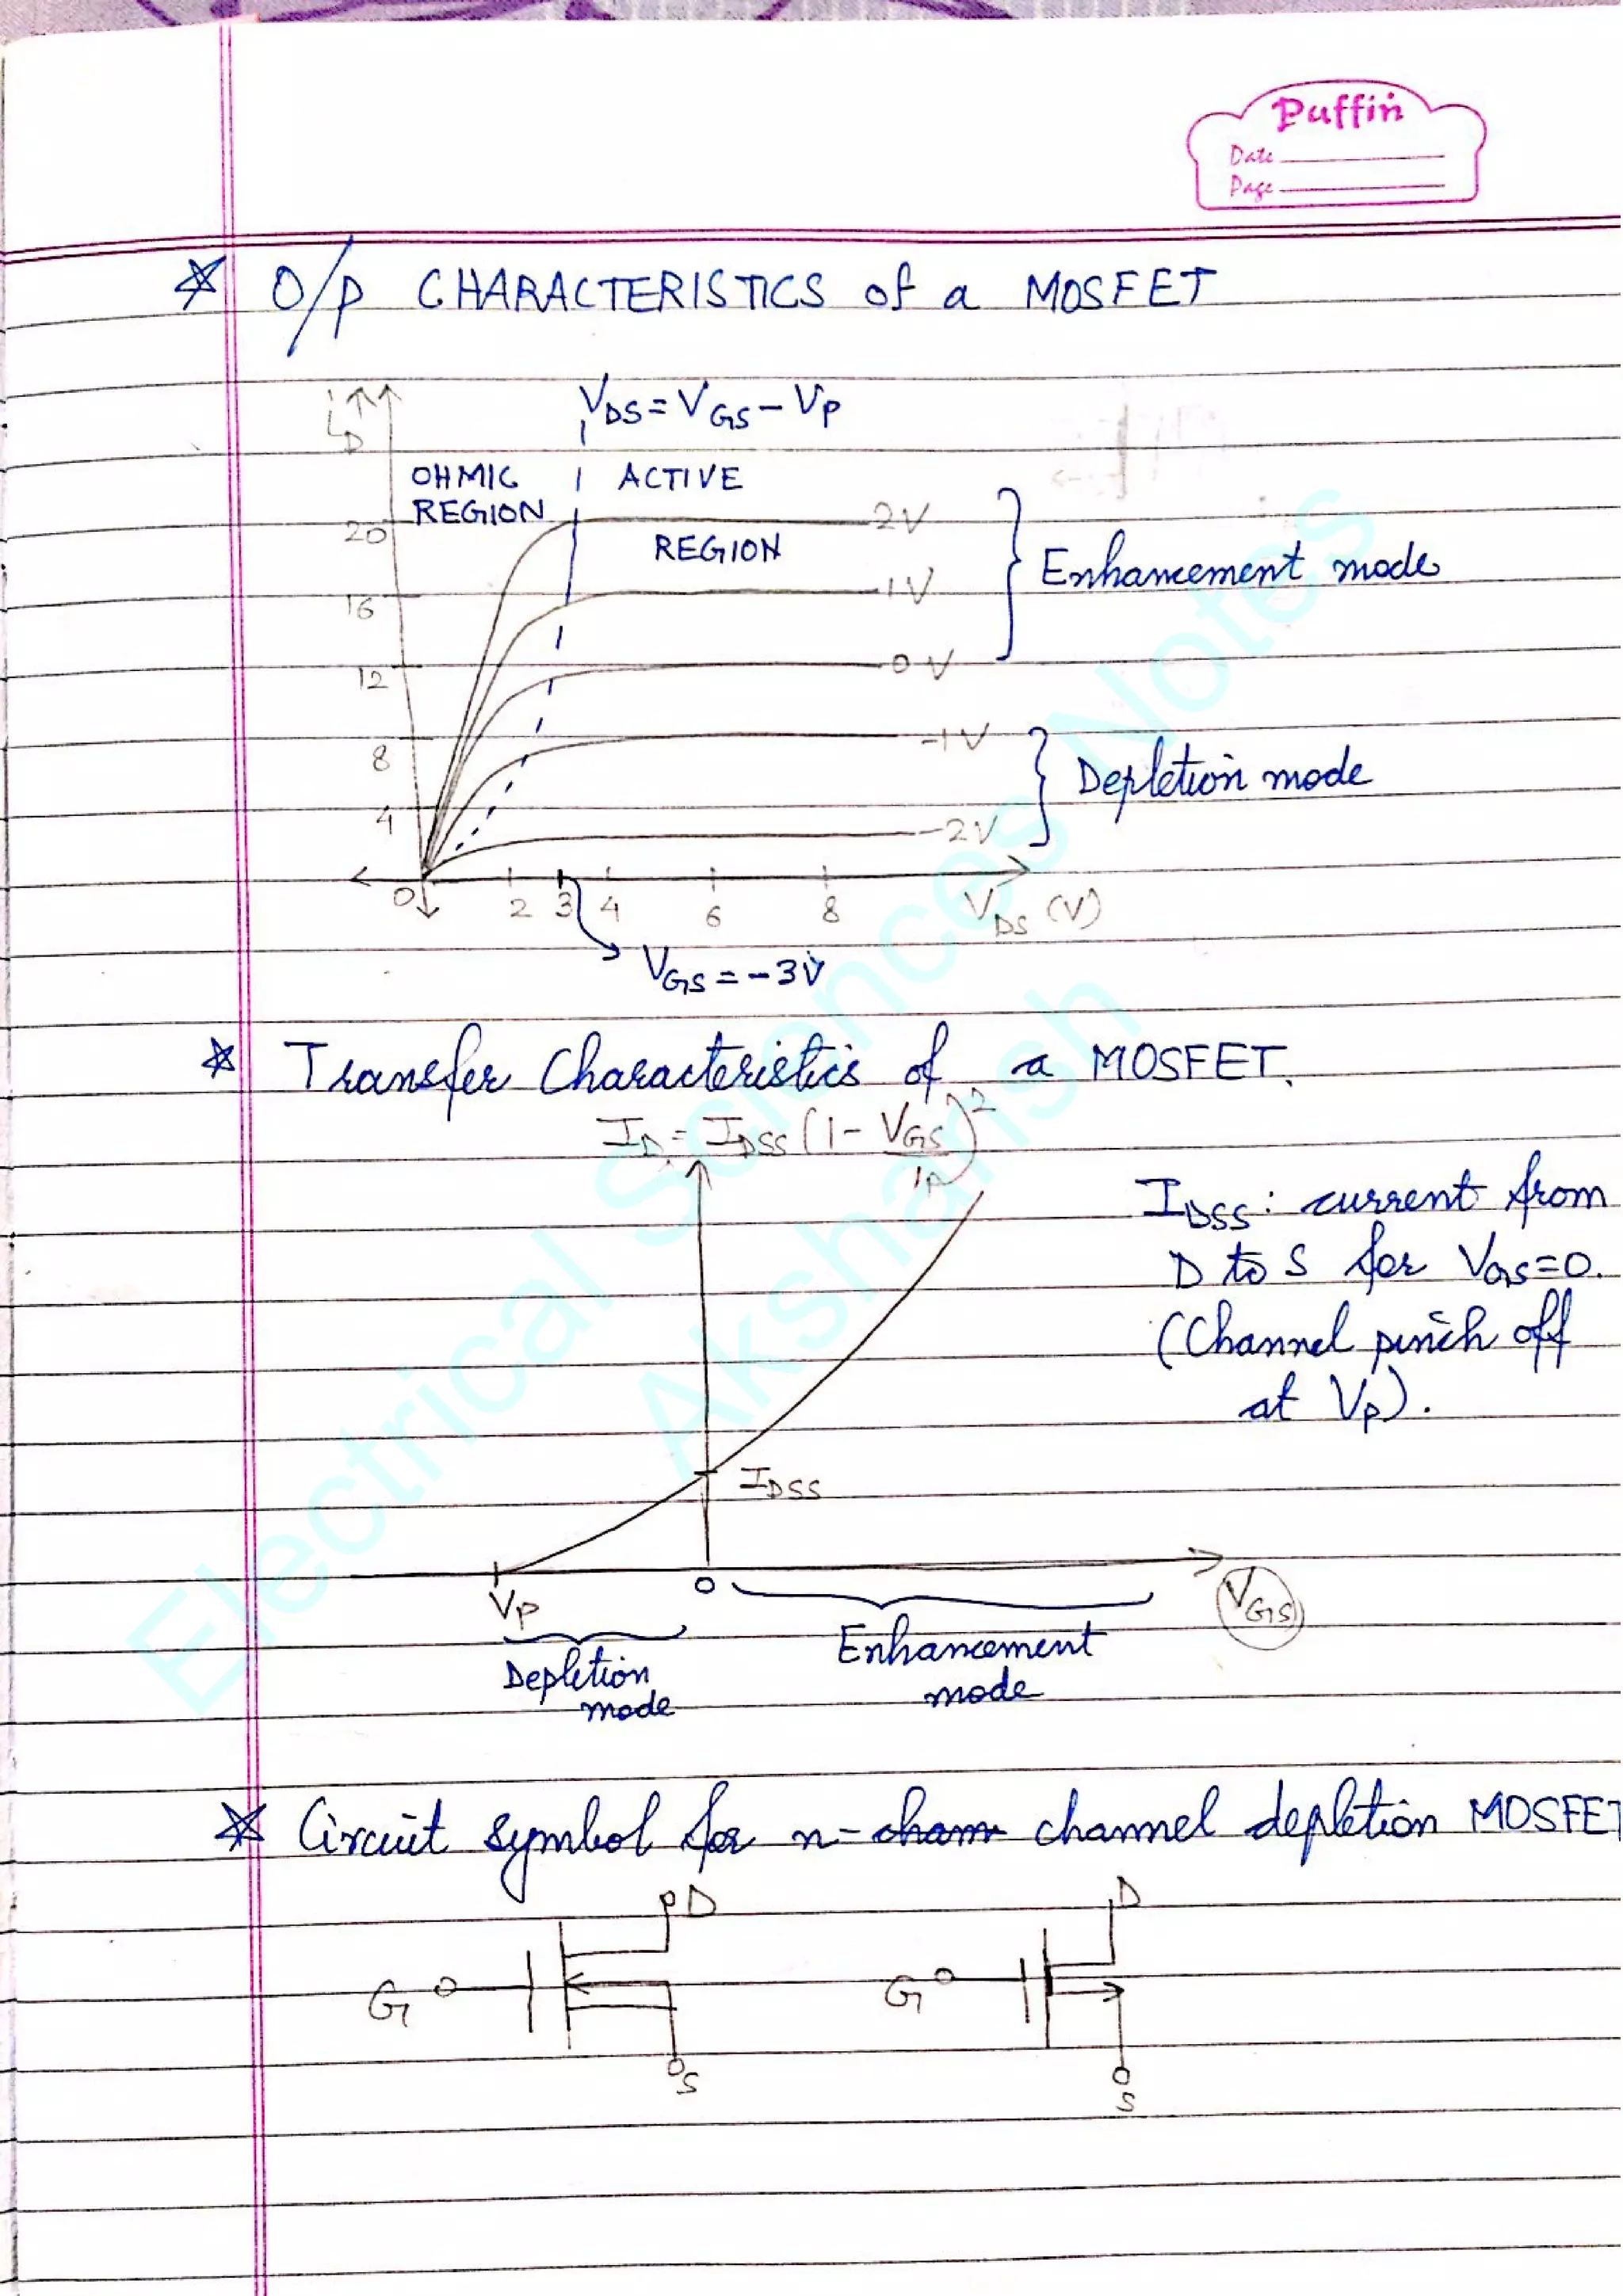 Puffin
Date
Page
* O/P CHARACTERISTICS of a MOSFET
i_D ↑
V_DS = V_GS - V_P
OHMIC REGION
ACTIVE REGION
20
16
12
8
4
0
2 3 4 6 8
V_DS (V)
2V
1V
0V
-1V
-2V
Enhancement mode
Depletion mode
V_GS = -3V
* Transfer Characteristics of a MOSFET.
I_D = I_DSS (1 - V_GS/V_P)^2
I_DSS : current from
D to S for V_GS = 0.
(Channel pinch off
at V_P).
I_DSS
V_P
0
V_GS
Depletion
mode
Enhancement
mode
* Circuit symbol for n- channel depletion MOSFET
D
G
S
D
G
S
Electrical Sciences Notes
Aksharish